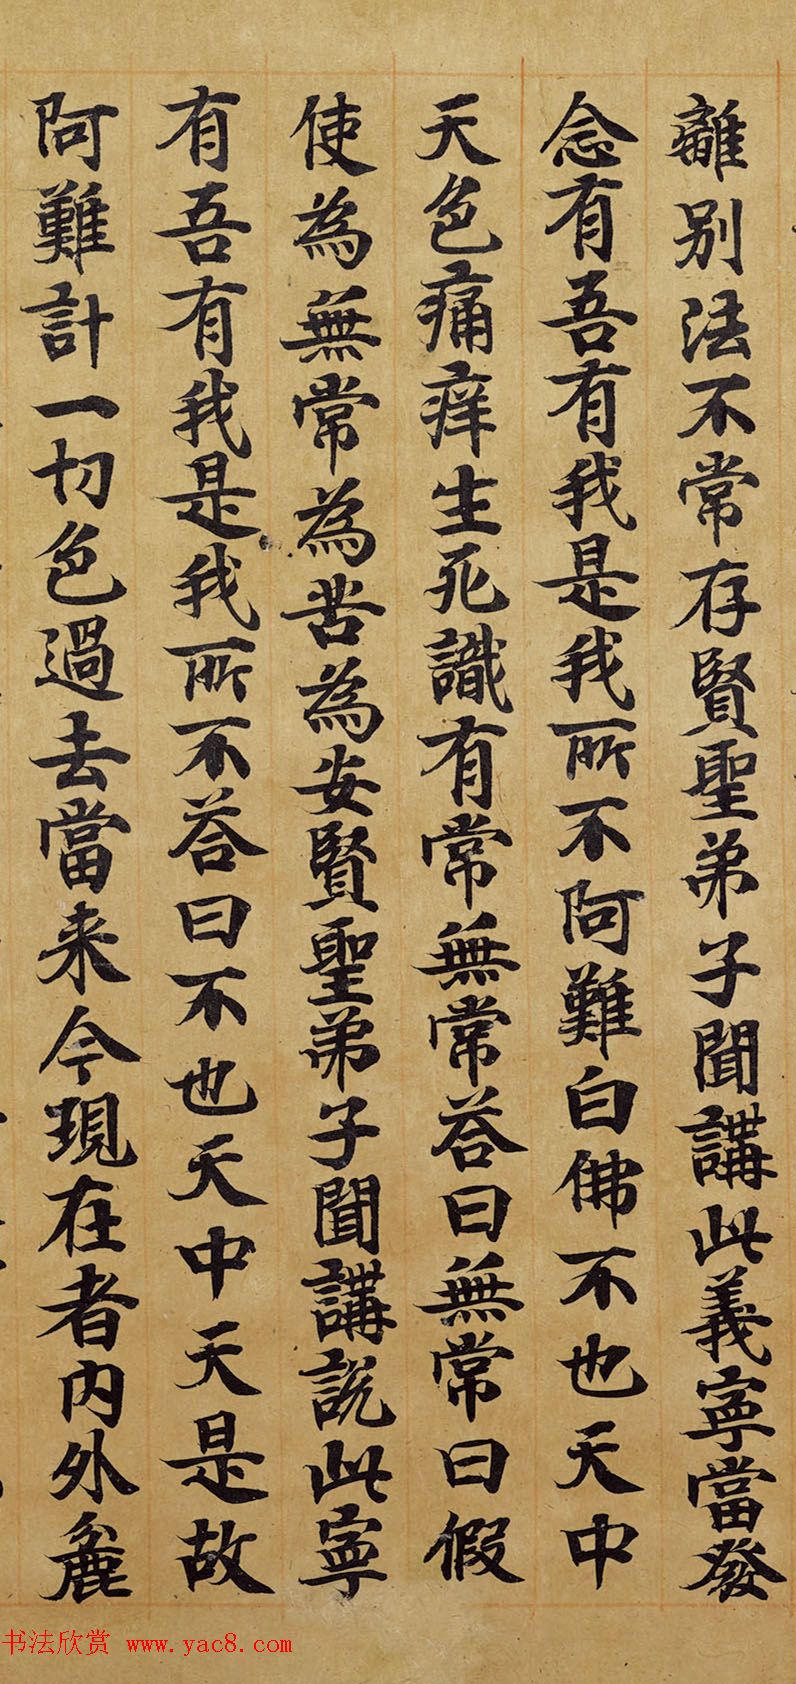 離別法不常存賢聖弟子聞講此義寧當發
念有吾有我是我所不阿難白佛不也天中
天色痛痒生死識有常無常荅曰無常曰假
使為無常為苦為安賢聖弟子聞講說此寧
有吾有我是我所不荅曰不也天中天是故
阿難計一切色過去當来今現在者内外麁
书法欣赏 www.yac8.com